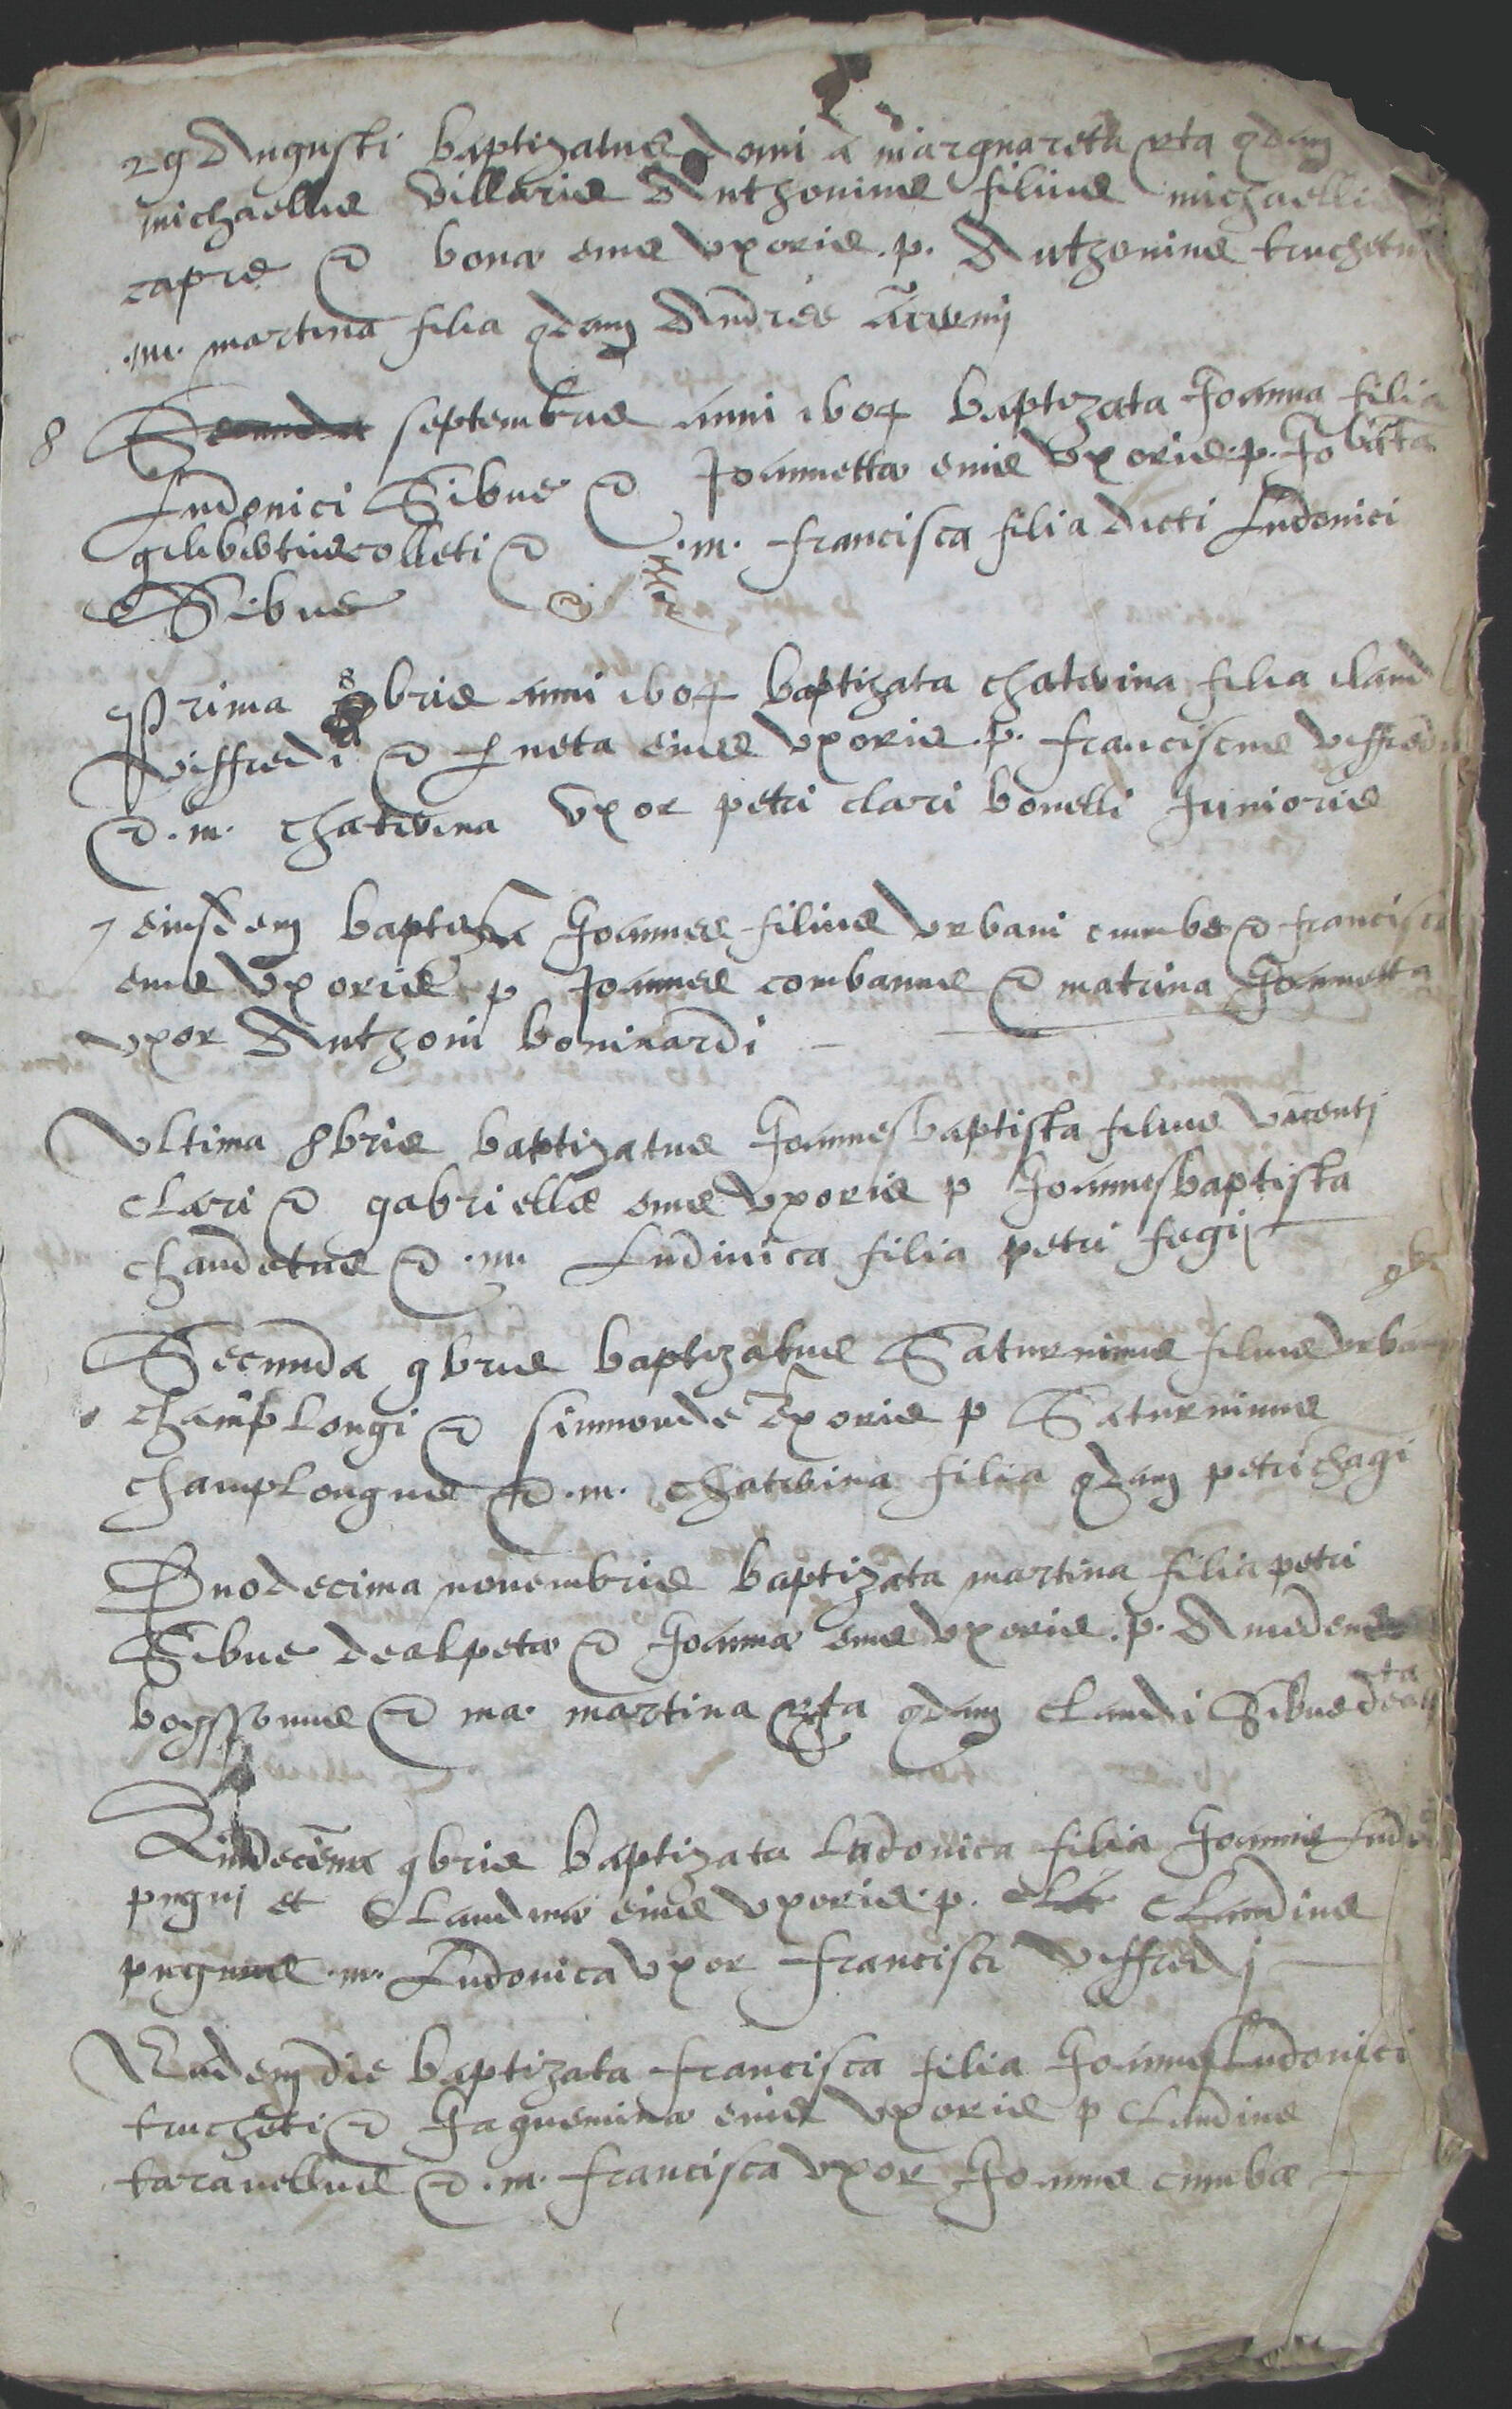 29 Augusti baptizatus domi a marguareta rta qdam
michaellis villaris Anthonius filius michaellis
capre et bonæ eius uxoris .p. Anthonius truchetus
.m. martina filia qdam Andree
8 Secunda septembris anni 1604 baptizata Joanna filia
Ludovici Sibue et Joannetta eius uxoris .p. Jo bãta
gilibertus colleti et .m. francisca filia dicti Ludovici
Sibue
Prima 8bris anni 1604 baptizata chaterina filia claud
viffredi et neta eius uxoris .p. franciscus viffredus
et .m. chaterina uxor petri clari bonelli Junioris
7 eiusdem baptiza Joannes filius urbani cumbe et francisca
eius uxoris p Joannes combanus et matrina Joannetta
uxor Anthoni boninardi
Ultima 8bris baptizatus Joannesbaptista filius vincentj
clari et gabriellæ eius uxoris p Joannesbaptista
chaudetus et .m. Ludivica filia petri fegij
9br
Secunda 9bris baptizatus Saturninus filius urbani
champlongi et simmonde uxoris p Saturninus
champlongus et .m. chaterina filia qdam petri chagi
Duodecima novembris baptizata martina filia petri
Sibue dealpeta et Joannæ eius uxoris .p. Amedeus
boyssonus et ma. martina rta qdam claudi Sibue dealpeta
Quindecima 9bris baptizata Ludovica filia Joannis Ludvi
pugnj et Claudinæ eius uxoris .p. Claudius
pugnus .m. Ludovica uxor francisci viffredj
Eadem die baptizata francisca filia Joannis Ludovici
trucheti et Jaquemina eius uxoris p Claudius
taravellus et .m. francisca uxor Joannis cumbæ